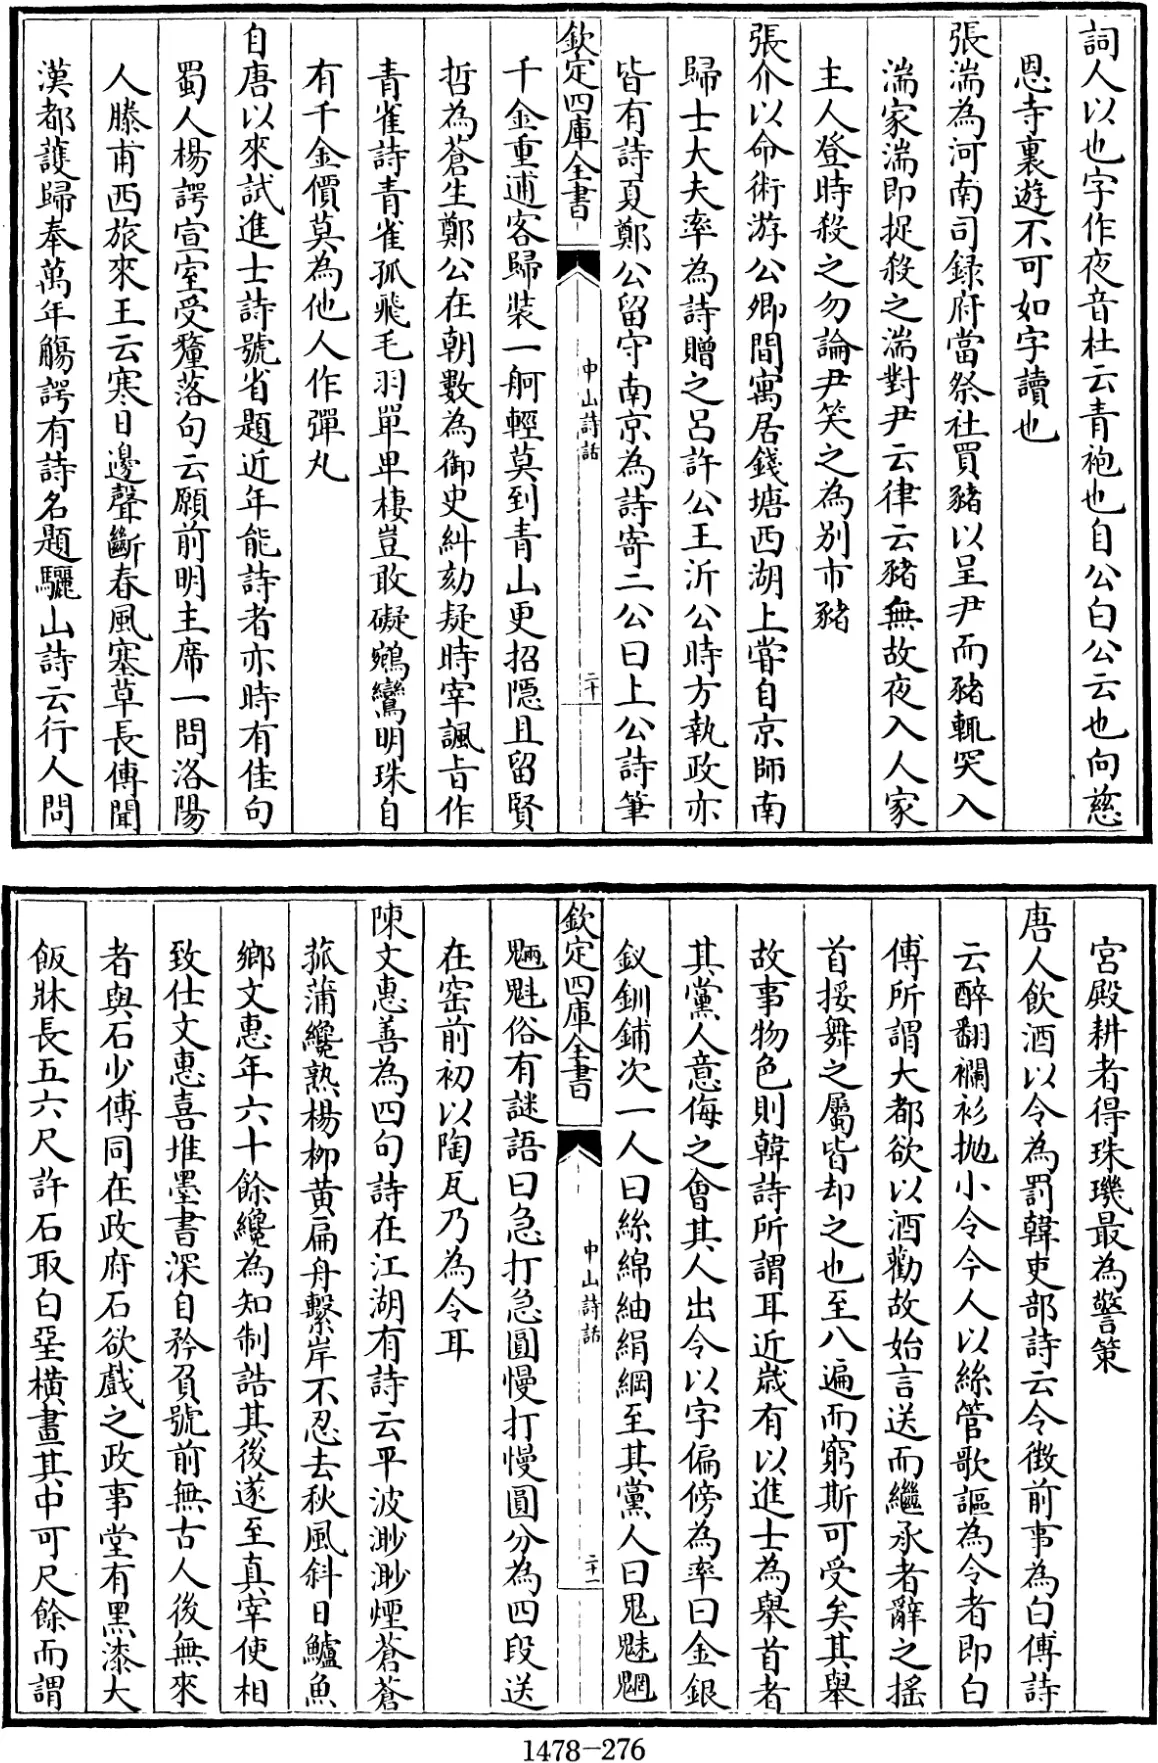 詞人以也字作夜音杜云青袍也自公白公云也向慈
恩寺裏遊不可如字讀也
張湍為河南司録府當祭社買豬以呈尹而豬輒突入
湍家湍即捉殺之湍對尹云律云豬無故夜入人家
主人登時殺之勿論尹笑之為别市豬
張介以命術游公卿間寓居錢塘西湖上嘗自京師南
歸士大夫率為詩贈之呂許公王沂公時方執政亦
皆有詩夏鄭公留守南京為詩寄二公曰上公詩筆
欽定四庫全書
中山詩話
二十
千金重逋客歸裝一舸輕莫到青山更招隠且留賢
哲為蒼生鄭公在朝數為御史糾劾疑時宰諷㫖作
青雀詩青雀孤飛毛羽單卑棲豈敢礙鵷鸞明珠自
有千金價莫為他人作彈丸
自唐以來試進士詩號省題近年能詩者亦時有佳句
蜀人楊諤宣室受釐落句云願前明主席一問洛陽
人滕甫西旅來王云寒日邊聲斷春風塞草長傳聞
漢都護歸奉萬年觴諤有詩名題驪山詩云行人問
宮殿耕者得珠璣最為警策
唐人飲酒以令為罰韓吏部詩云令徴前事為白傅詩
云醉翻襴衫抛小令今人以絲管歌謳為令者即白
傅所謂大都欲以酒勸故始言送而繼承者辭之揺
首挼舞之屬皆却之也至八遍而窮斯可受矣其舉
故事物色則韓詩所謂耳近嵗有以進士為舉首者
其黨人意侮之會其人出令以字偏傍為率曰金銀
釵釧鋪次一人曰絲綿紬絹綱至其黨人曰鬼魅魍
欽定四庫全書
中山詩話
二十一
魎魁俗有謎語曰急打急圓慢打慢圓分為四段送
在窑前初以陶瓦乃為令耳
陳文惠善為四句詩在江湖有詩云平波渺渺煙蒼蒼
菰蒲纔熟楊柳黄扁舟繫岸不忍去秋風斜日鱸魚
鄉文惠年六十餘纔為知制誥其後遂至真宰使相
致仕文惠喜堆墨書深自矜負號前無古人後無來
者與石少傅同在政府石欲戲之政事堂有黑漆大
飯牀長五六尺許石取白堊横畫其中可尺餘而謂
1478-276